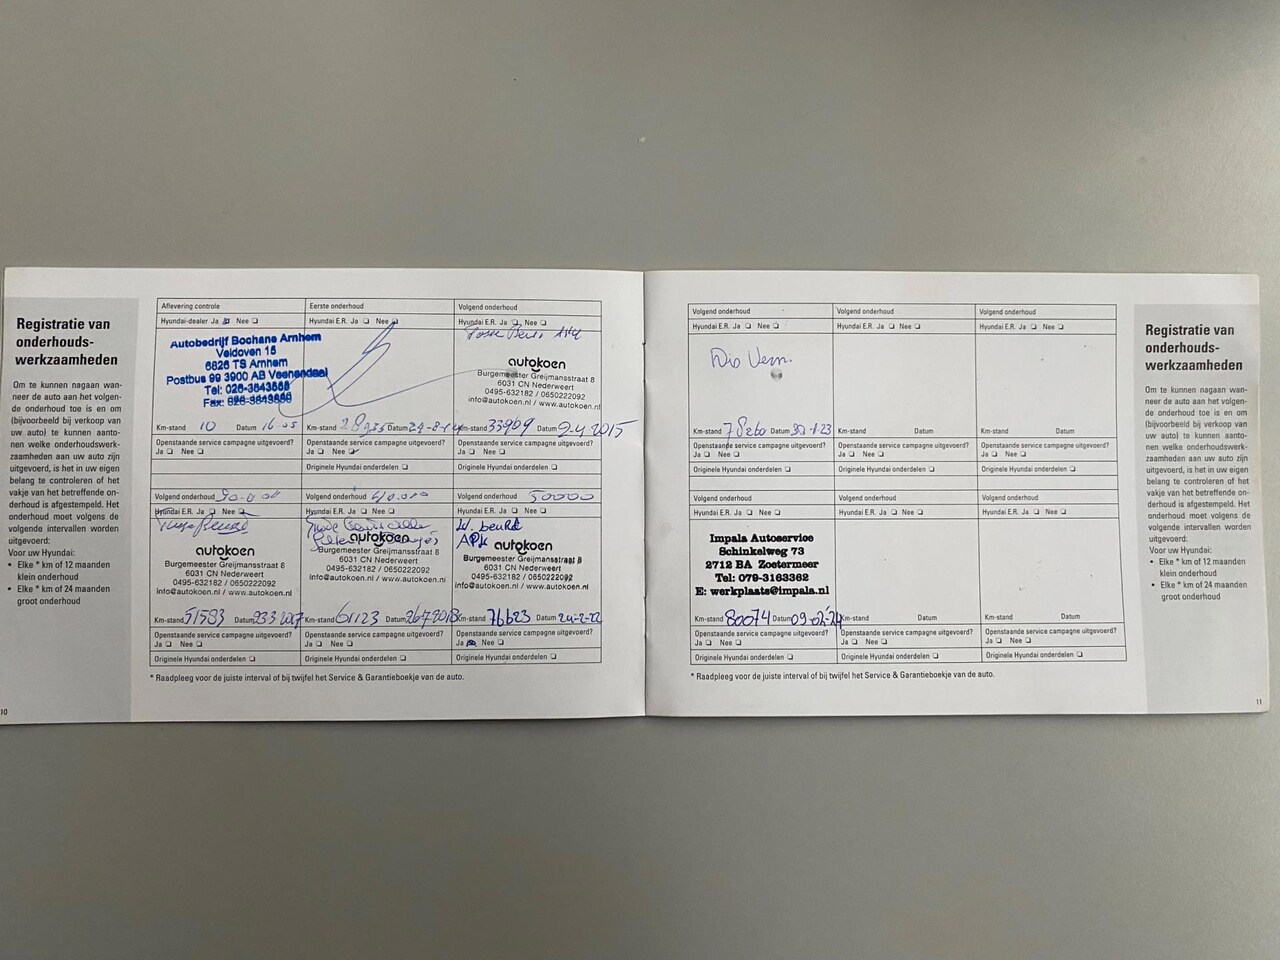 Registratie van
onderhouds-
werkzaamheden
Om te kunnen nagaan wan-
neer de auto aan het volgen-
de onderhoud toe is en om
(bijvoorbeeld bij verkoop van
uw auto) te kunnen aanto-
nen welke onderhoudswerk-
zaamheden aan uw auto zijn
uitgevoerd, is het in uw eigen
belang te controleren of het
vakje van het betreffende on-
derhoud is afgestempeld. Het
onderhoud moet volgens de
volgende intervallen worden
uitgevoerd:
Voor uw Hyundai:
• Elke * km of 12 maanden
klein onderhoud
• Elke * km of 24 maanden
groot onderhoud
10
Aflevering controle
Hyundai-dealer Ja Nee
Autobedrijf Bochane Arnhem
Veldoven 15
6826 TS Arnhem
Postbus 99 3900 AB Veenendaal
Tel: 026-3643568
Km-stand 10 Datum
Openstaande service campagne uitgevoerd?
Ja Nee
Eerste onderhoud
Hyundai E.R. Ja Nee
Km-stand Datum
Openstaande service campagne uitgevoerd?
Ja Nee
Originele Hyundai onderdelen
Volgend onderhoud
Hyundai E.R. Ja Nee
autokoen
Burgemeester Greijmansstraat 8
6031 CN Nederweert
0495-632182 / 0650222092
info@autokoen.nl / www.autokoen.nl
Km-stand 33909 Datum 2.4 2015
Openstaande service campagne uitgevoerd?
Ja Nee
Originele Hyundai onderdelen
Volgend onderhoud
Hyundai E.R. Ja Nee
autokoen
Burgemeester Greijmansstraat 8
6031 CN Nederweert
0495-632182 / 0650222092
info@autokoen.nl / www.autokoen.nl
Km-stand 51593 Datum
Openstaande service campagne uitgevoerd?
Ja Nee
Originele Hyundai onderdelen
Volgend onderhoud
Hyundai E.R. Ja Nee
autokoen
Burgemeester Greijmansstraat 8
6031 CN Nederweert
0495-632182 / 0650222092
info@autokoen.nl / www.autokoen.nl
Km-stand 61123 Datum 2672018
Openstaande service campagne uitgevoerd?
Ja Nee
Originele Hyundai onderdelen
Volgend onderhoud 50000
Hyundai E.R. Ja Nee
K. beurt
APK
autokoen
Burgemeester Greijmansstraat 8
6031 CN Nederweert
0495-632182 / 0650222092
info@autokoen.nl / www.autokoen.nl
Km-stand 76623 Datum 24-2-22
Openstaande service campagne uitgevoerd?
Ja Nee
Originele Hyundai onderdelen
* Raadpleeg voor de juiste interval of bij twijfel het Service & Garantieboekje van de auto.
Volgend onderhoud
Hyundai E.R. Ja Nee
Km-stand Datum
Openstaande service campagne uitgevoerd?
Ja Nee
Originele Hyundai onderdelen
Volgend onderhoud
Hyundai E.R. Ja Nee
Km-stand Datum
Openstaande service campagne uitgevoerd?
Ja Nee
Originele Hyundai onderdelen
Volgend onderhoud
Hyundai E.R. Ja Nee
Km-stand Datum
Openstaande service campagne uitgevoerd?
Ja Nee
Originele Hyundai onderdelen
Volgend onderhoud
Hyundai E.R. Ja Nee
Impala Autoservice
Schinkelweg 73
2712 BA Zoetermeer
Tel: 079-3163362
E: werkplaats@impala.nl
Km-stand 80074 Datum 09-02-24
Openstaande service campagne uitgevoerd?
Ja Nee
Originele Hyundai onderdelen
Volgend onderhoud
Hyundai E.R. Ja Nee
Km-stand Datum
Openstaande service campagne uitgevoerd?
Ja Nee
Originele Hyundai onderdelen
Volgend onderhoud
Hyundai E.R. Ja Nee
Km-stand Datum
Openstaande service campagne uitgevoerd?
Ja Nee
Originele Hyundai onderdelen
* Raadpleeg voor de juiste interval of bij twijfel het Service & Garantieboekje van de auto.
Registratie van
onderhouds-
werkzaamheden
Om te kunnen nagaan wan-
neer de auto aan het volgen-
de onderhoud toe is en om
(bijvoorbeeld bij verkoop van
uw auto) te kunnen aanto-
nen welke onderhoudswerk-
zaamheden aan uw auto zijn
uitgevoerd, is het in uw eigen
belang te controleren of het
vakje van het betreffende on-
derhoud is afgestempeld. Het
onderhoud moet volgens de
volgende intervallen worden
uitgevoerd:
Voor uw Hyundai:
• Elke * km of 12 maanden
klein onderhoud
• Elke * km of 24 maanden
groot onderhoud
11